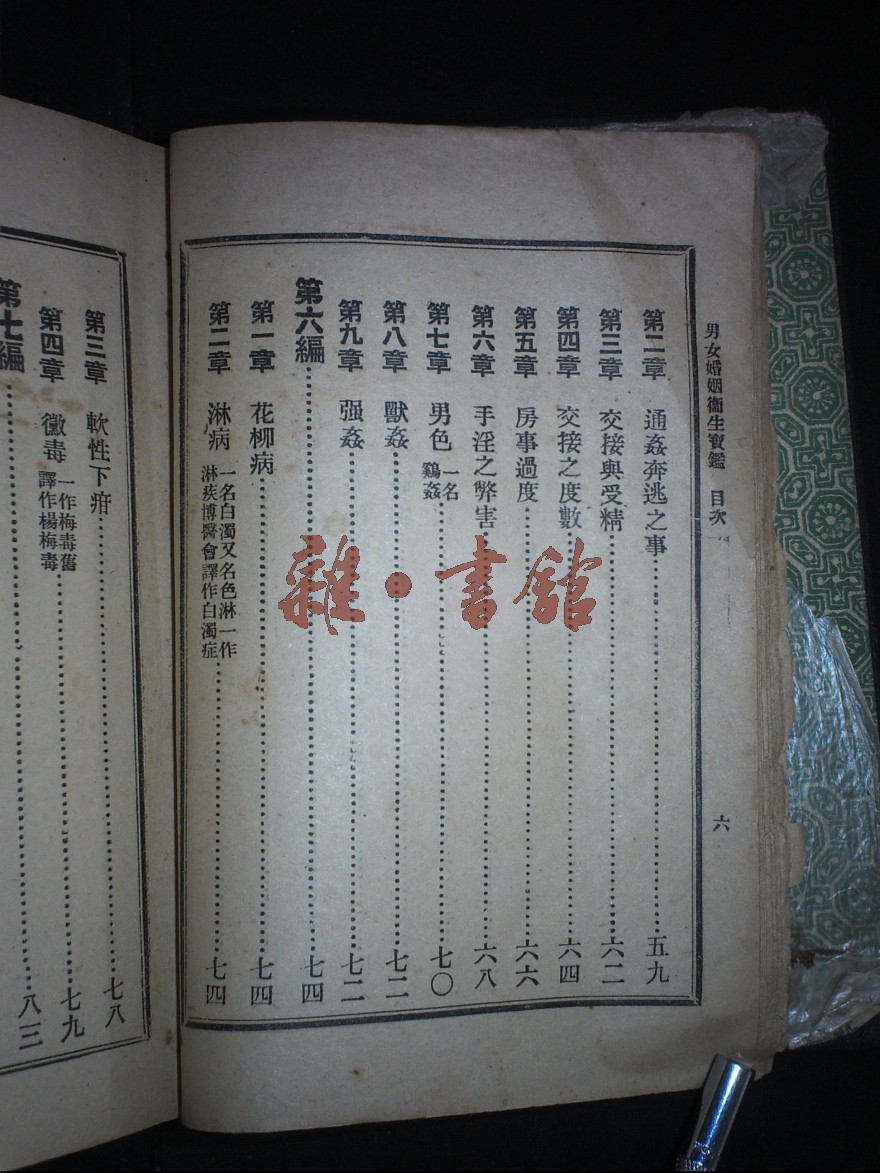 男女婚姻衞生寶鑑 目次 六
第二章 通姦奔逃之事 五九
第三章 交接與受精 六二
第四章 交接之度數 六四
第五章 房事過度 六六
第六章 手淫之弊害 六八
第七章 男色 一名鷄姦 七〇
第八章 獸姦 七二
第九章 强姦 七二
第六編 七四
第一章 花柳病 七四
第二章 淋病 一名白濁又名色淋一作淋疾博醫會譯作白濁症 七四
第三章 軟性下疳 七八
第四章 黴毒 一作梅毒舊譯作楊梅毒 七九
第七編 八三
雜·書館